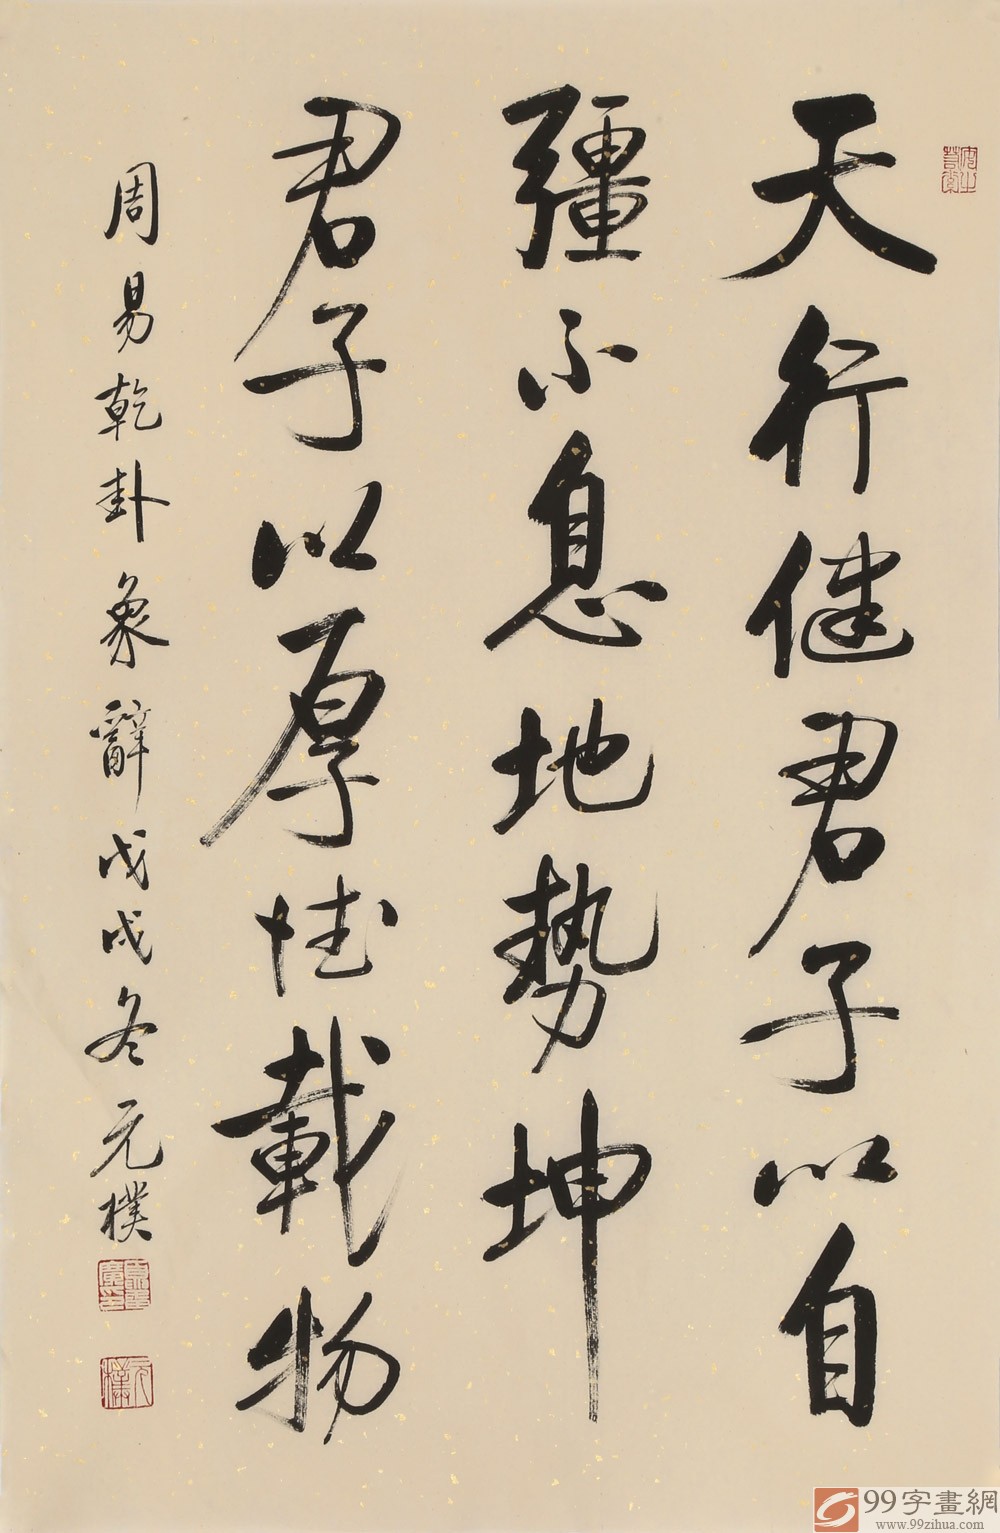 天行健君子以自
疆不息地勢坤
君子以厚德載物
周易乾卦象辭戊戌冬元樸
元樸
99字畫網
www.99zihua.com